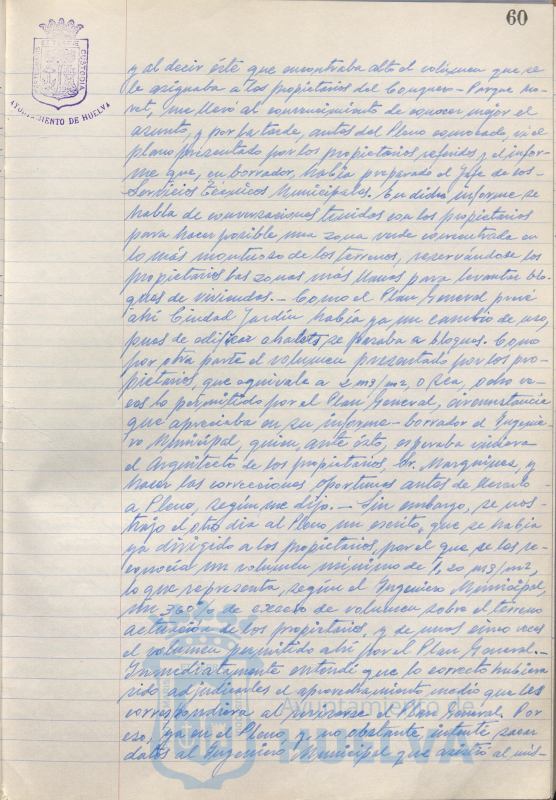 60
AYUNTAMIENTO DE HUELVA
y al decir éste que encontraba alto el volúmen que se
le asignaba a los propietarios del Conquero - Parque Mo-
ret, me llevó al convencimiento de conocer mejor el
asunto, y por la tarde, antes del Pleno convocado, vi el
plano presentado por los propietarios referidos y el infor-
me que, en borrador, había preparado el Jefe de los
Servicios Técnicos Municipales. En dicho informe se
habla de conversaciones tenidas con los propietarios
para hacer posible una zona verde concentrada en
lo más montuoso de los terrenos, reservándose los
propietarios las zonas más llanas para levantar blo-
ques de viviendas.- Como el Plan General prevé
ahí Ciudad Jardín había ya un cambio de uso,
pues de edificar chalets, se pasaba a bloques. Como
por otra parte el volumen presentado por los pro-
pietarios, que equivale a 2 m3/m2, o sea, ocho ve-
ces lo permitido por el Plan General, circunstancia
que apreciaba en su informe-borrador el Ingenie-
ro Municipal, quien, ante ésto, esperaba viniera
el Arquitecto de los propietarios, Sr. Marquínez, y
hacer las correcciones oportunas antes de llevarlo
a Pleno, según me dijo.- Sin embargo, se nos
trajo el otro día al Pleno un escrito, que se había
ya dirigido a los propietarios, por el que se les re-
conocía un volumen mínimo de 1,20 m3/m2,
lo que representa, según el Ingeniero Municipal,
un 360% de exceso de volumen sobre el terreno
actuación de los propietarios, y de unos cinco veces
el volumen permitido ahí por el Plan General.-
Inmediatamente entendí que lo correcto hubiera
sido adjudicarles el aprovechamiento medio que les
correspondiera al revisarse el Plan General. Por
eso, ya en el Pleno, y no obstante, intenté sacar
datos al Ingeniero Municipal que asistió al mis-
Ayuntamiento de
HUELVA